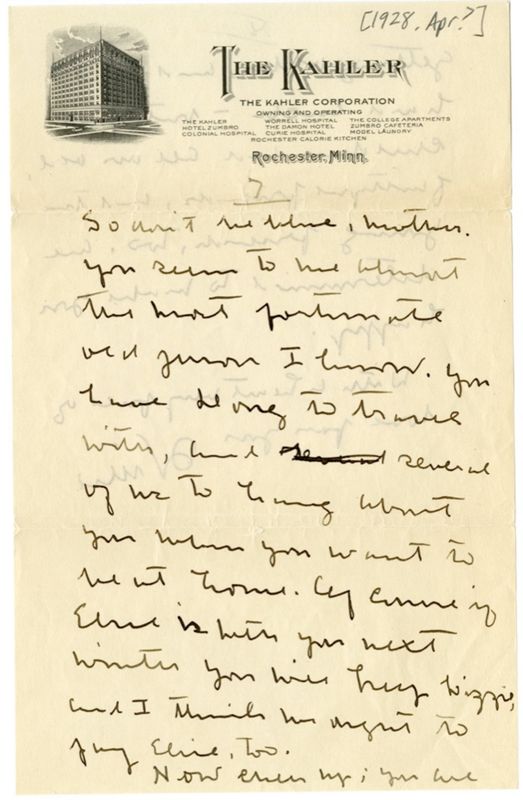 [1928. Apr.?]
THE KAHLER
THE KAHLER CORPORATION
OWNING AND OPERATING
THE KAHLER WORRELL HOSPITAL THE COLLEGE APARTMENTS
HOTEL ZUMBRO THE DAMON HOTEL ZUMBRO CAFETERIA
COLONIAL HOSPITAL CURIE HOSPITAL MODEL LAUNDRY
ROCHESTER CALORIE KITCHEN
Rochester, Minn.
7
So don't be blue, mother.
You seem to me almost
the most fortunate
old person I know. You
have to travel
with, and several several
of us to hang about
you when you want to
be at home. Of course if
Elsie is with you next
winter you will keep Lizzie,
and I think we ought to
pay Elsie, too.
Now cheer up; you are